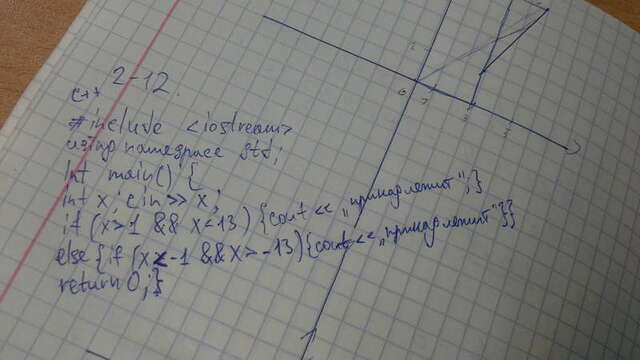 C++ 2-12.
#include <iostream>
using namespace std;
int main() {
int x; cin >> x;
if (x>1 && x<13) {cout << „принадлежит“;}
else {if (x<-1 && x>-13){cout << „принадлежит“}}
return 0;}
0